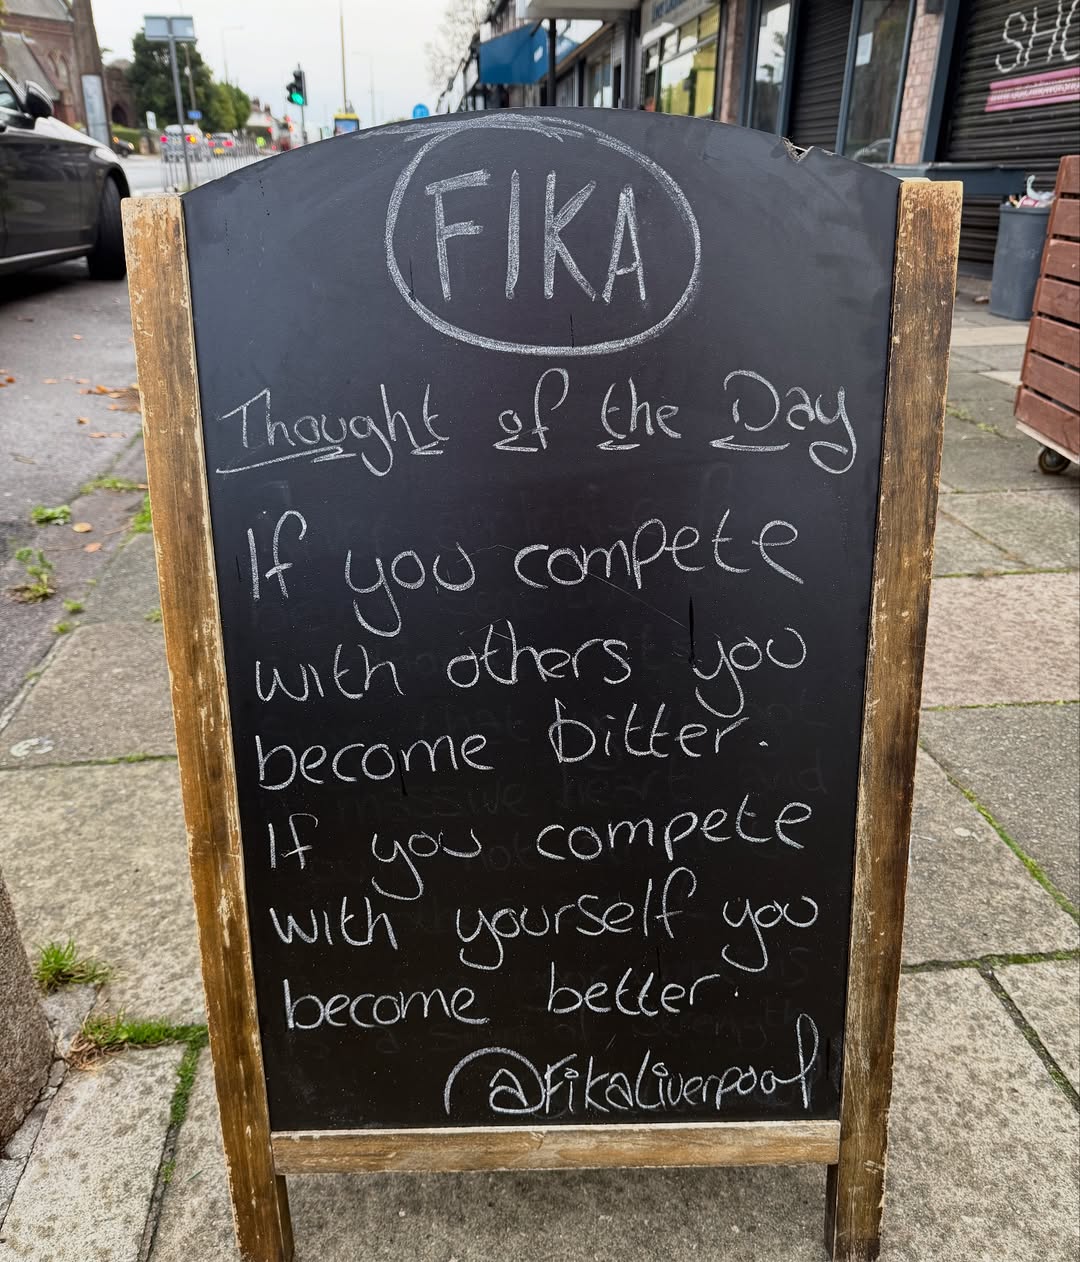 FIKA
Thought of the Day
If you compete
with others you
become bitter.
If you compete
with yourself you
become better.
@FikaLiverpool
SHO